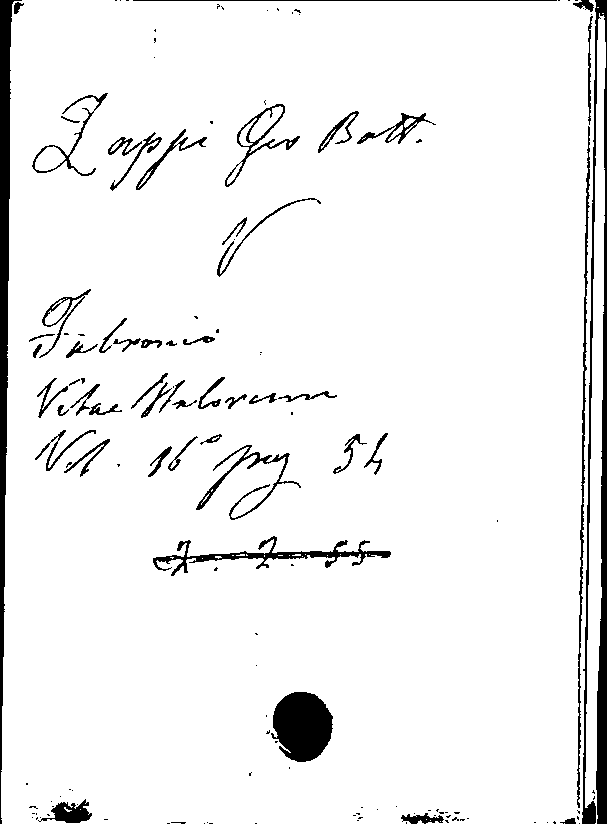 Zappi Gio Batt.
V
Fabronio
Vitae Italorum
Vol. 16° pag 54
Z. 2. 55